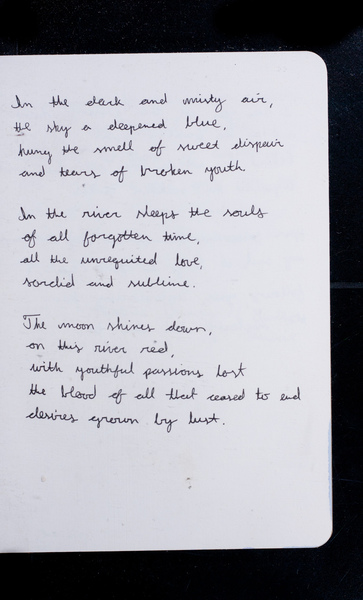 In the dark and misty air,
the sky a deepened blue,
hung the smell of sweet dispair
and tears of broken youth.
In the river sleeps the souls
of all forgotten time,
all the unrequited love,
sordid and sublime.
The moon shines down,
on this river red,
with youthful passions lost
the blood of all that ceased to end
desires grown by lust.